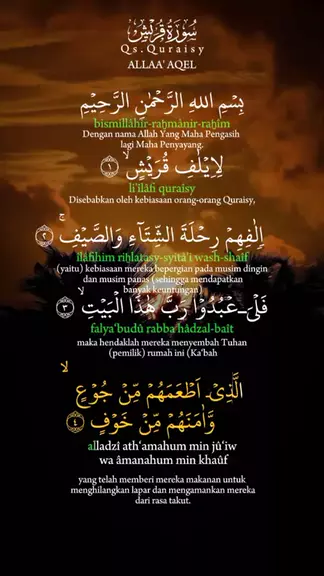 سُوْرَةُ قُرَيْشٍ
Qs.Quraisy
ALLAA' AQEL
بِسْمِ اللهِ الرَّحْمٰنِ الرَّحِيْمِ
bismillâhir-raḫmânir-raḫîm
Dengan nama Allah Yang Maha Pengasih
lagi Maha Penyayang.
لِاِيْلٰفِ قُرَيْشٍۙ ١
li'îlâfi quraîsy
Disebabkan oleh kebiasaan orang-orang Quraisy,
اٖلٰفِهِمْ رِحْلَةَ الشِّتَاۤءِ وَالصَّيْفِۚ ٢
îlâfihim riḫlatasy-syitâ'i wash-shaîf
(yaitu) kebiasaan mereka bepergian pada musim dingin
dan musim panas (sehingga mendapatkan
banyak keuntungan)
فَلْيَـعْبُدُوْا رَبَّ هٰذَا الْبَيْتِۙ ٣
falya‘budû rabba hâdzal-baît
maka hendaklah mereka menyembah Tuhan
(pemilik) rumah ini (Ka‘bah
الَّذِيْٓ اَطْعَمَهُمْ مِّنْ جُوْعٍ ۙ
وَّاٰمَنَهُمْ مِّنْ خَوْفٍ ٤
alladzî ath‘amahum min jû‘iw
wa âmanahum min khaûf
yang telah memberi mereka makanan untuk
menghilangkan lapar dan mengamankan mereka
dari rasa takut.